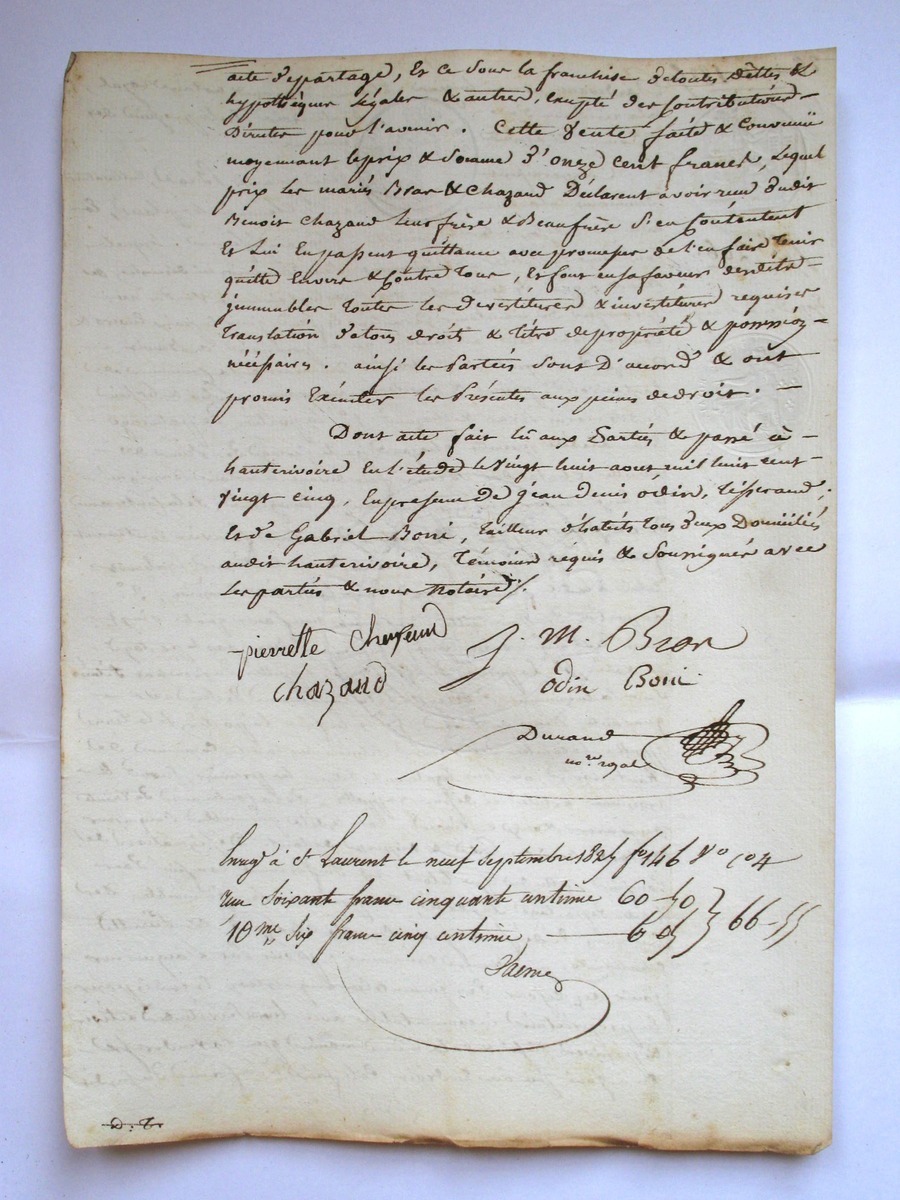 acte departage, Et ce sous la franchise detoutes dettes &
hypothèques légales & autres, excepté des Contributions
Directes pour l'avenir. Cette Vente faite & Convenue
moyennant le prix & Somme d'onze cent francs, Lequel
prix les mariés Bror & Chazaud Déclarent avoir reçu dudit
Benoit Chazaud leur frère & Beaufrère s'en Contentent
Et Lui En passent quittance avec promesse de l'en faire tenir
quitte Envers & Contre tous, Et font en sa faveur desdits
immeubles toutes les devestitures & investitures requises
translation de tous droits & titre de propriété & possession
nécéssaires. ainsi les Parties sont D'accord & ont
promis Exécuter les Présentes aux peines de droit. —
Dont acte fait lû aux Parties & passé à
hauterivoire En l'étude le vingt huit aout mil huit cent
vingt cinq, En presence de jean denis odin, tisserand,
Et de Gabriel Boni, tailleur d'habits tous deux Domiciliés
audit hauterivoire, témoins requis & Soussignés avec
Les parties & nous notaire ./.
pierrette Chazaud J. M. Bror
chazaud odin Boni
Durand
no.re royal
Enreg. à St Laurent le neuf Septembre 1825 fo 146 Vo co 4
reçu Soixante francs cinquante centimes 60-50 } 66-55
10me Six francs cinq centimes — 6 05
D. T.